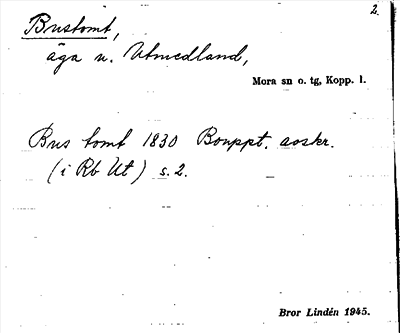 2.
Bustomt,
äga v. Utmedland,
Mora sn o. tg, Kopp. l.
Bus tomt 1830 Bouppt. aoskr.
(i Rb Ut) s. 2.
Bror Lindén 1945.